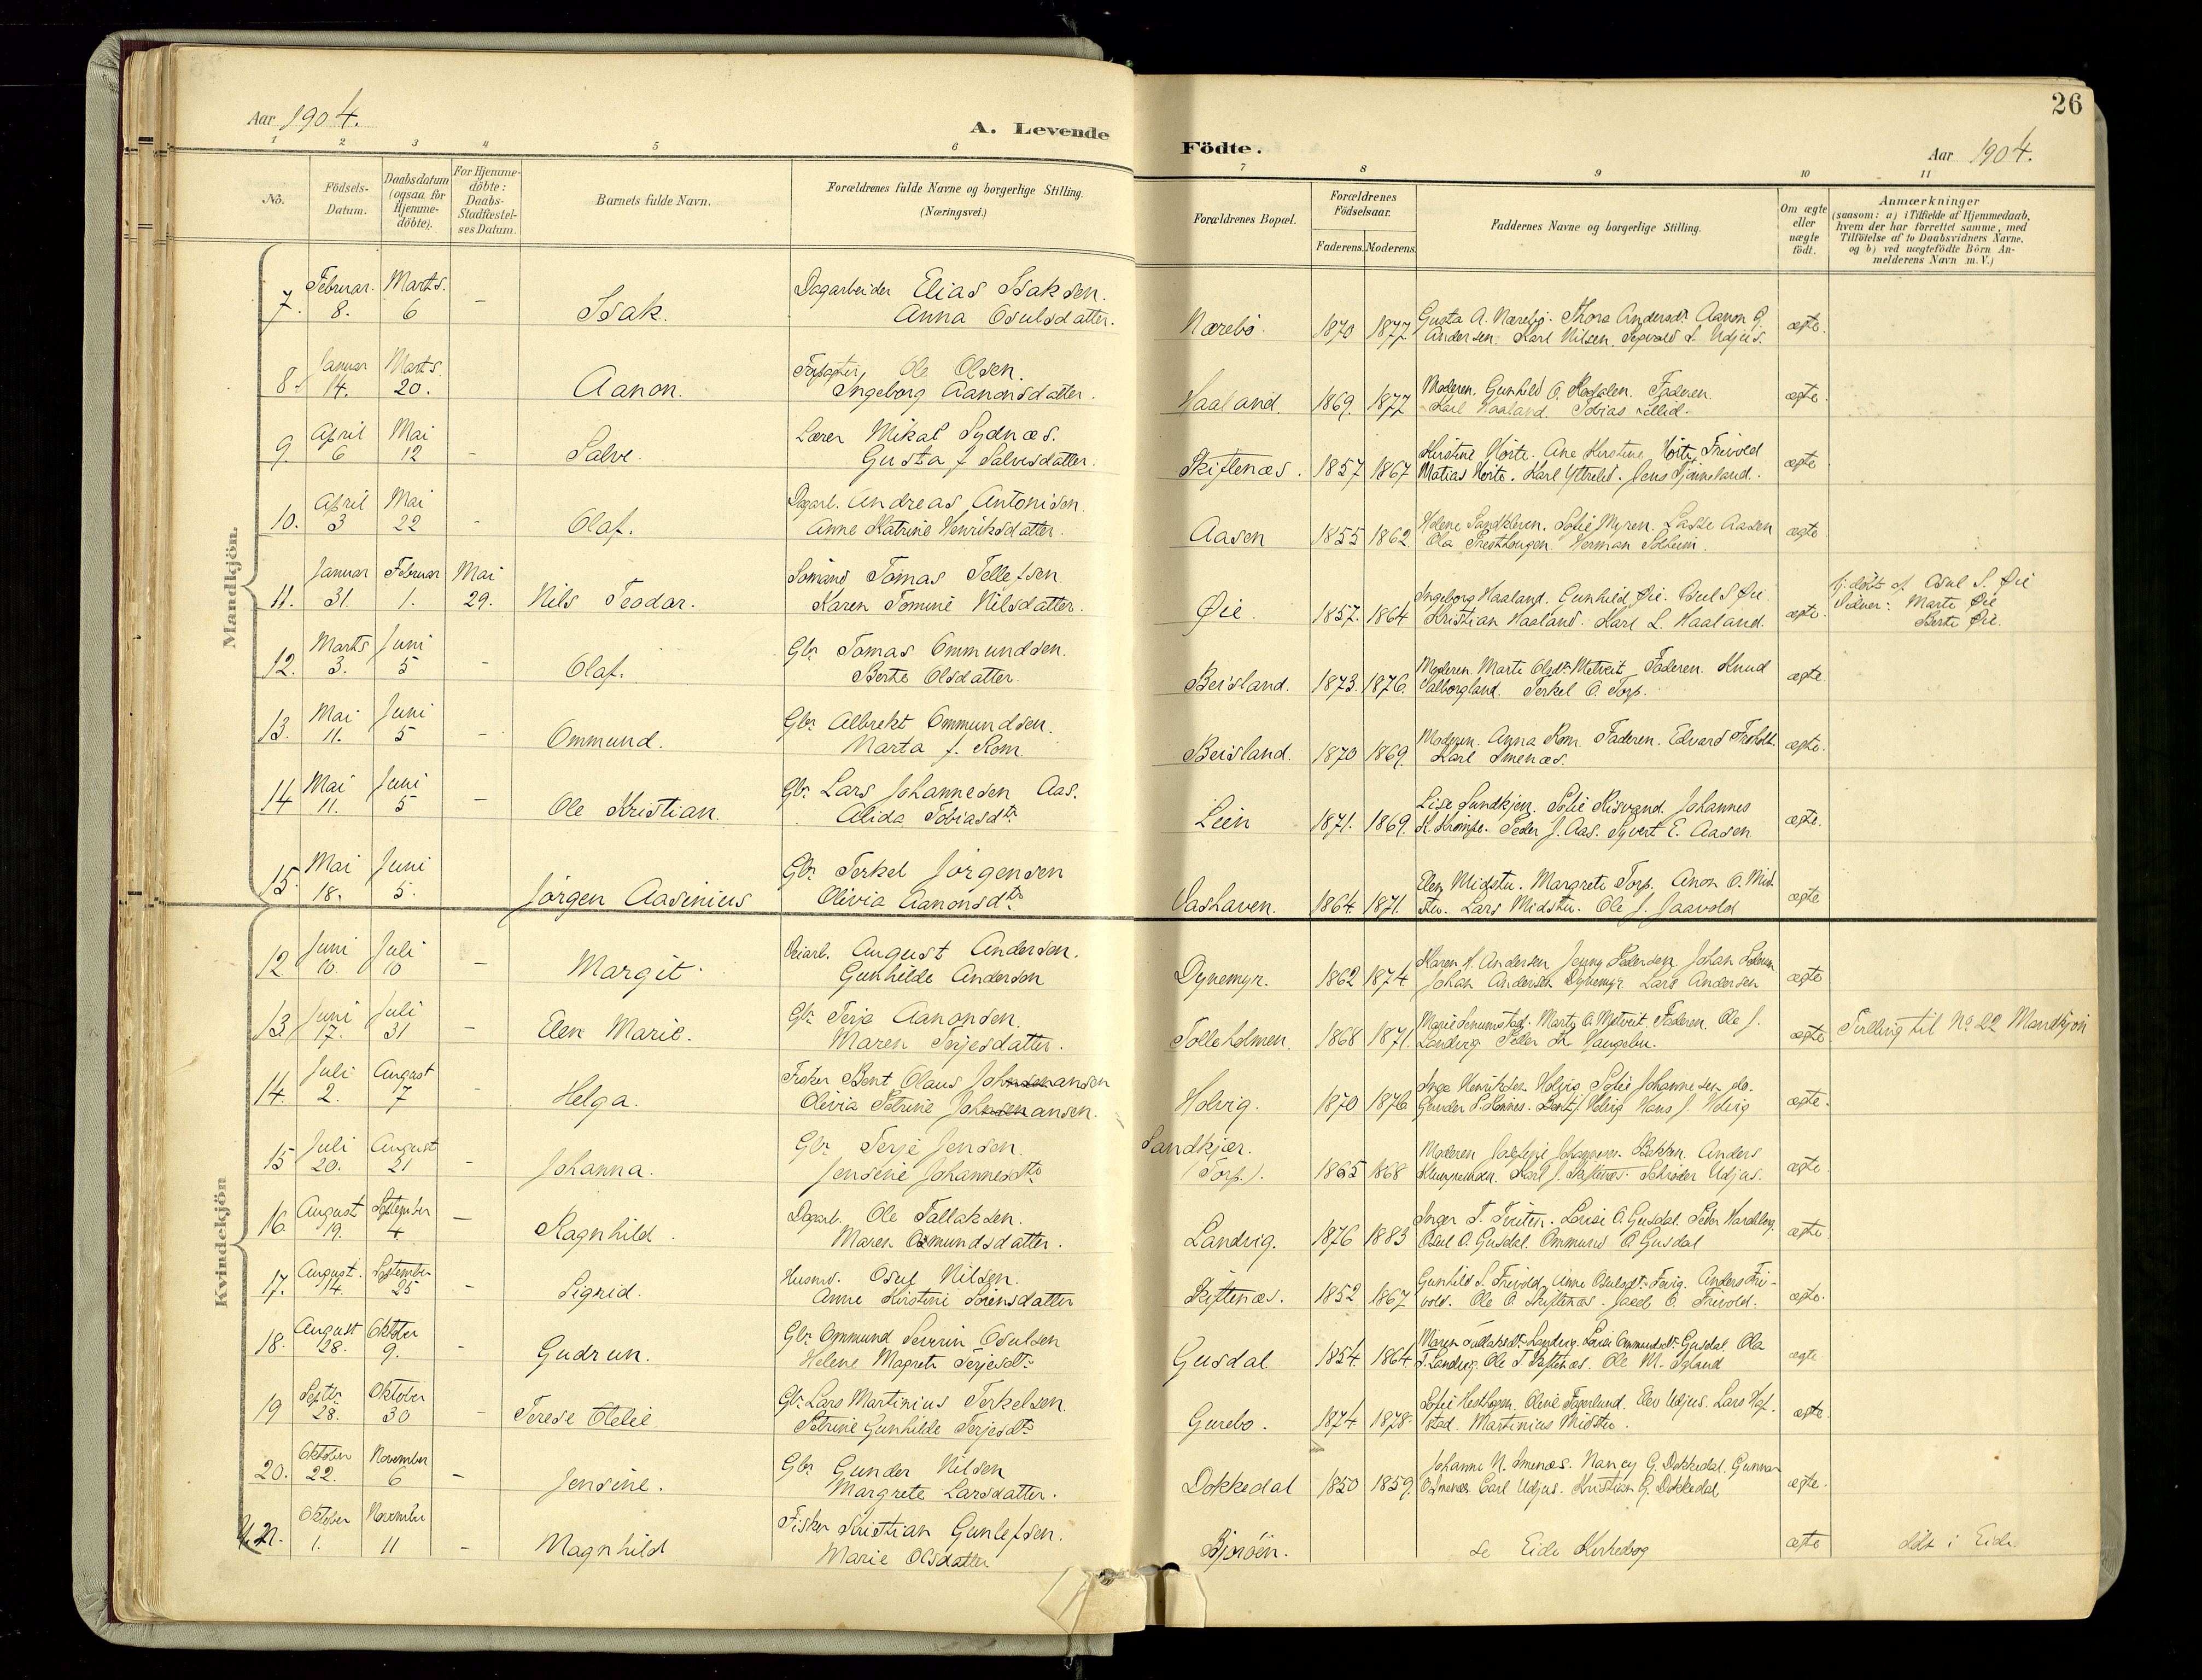 26
Aar 1904.
A. Levende Födte.
Aar 1904.
1 2 3 4 5 6 7 8 9 10 11
No.
Födsels-Datum.
Daabsdatum (ogsaa for Hjemme-döbte).
For Hjemme-döbte: Daabs-Stadfæstel-ses Datum.
Barnets fulde Navn.
Forældrenes fulde Navne og borgerlige Stilling.
(Næringsvei.)
Forældrenes Bopæl.
Forældrenes Födselsaar.
Faderens. Moderens.
Faddernes Navne og borgerlige Stilling.
Om ægte eller uægte födt.
Anmærkninger
(saasom: a) i Tilfælde af Hjemmedaab,
hvem der har forrettet samme, med
Tilföielse af to Daabsvidners Navne,
og b) ved uægtefödte Börn An-
melderens Navn m. V.)
Mandkjön.
Februar. Marts. Dagarbeider Elias Isaksen.
7. 8. 6 - Isak. Anna Osulsdatter. Nærebö. 1870 1877 ægte.
Andersen. Karl Nilsen.
Januar Marts. Ole Olsen.
8. 14. 20. Aanon. Ingeborg Aanonsdatter. Haaland. 1869. 1877 ægte.
Moderen. Gunhild O. Faderen.
Karl Haaland. Tobias
April Mai Lærer Mikal Sydnæs.
9. 6 12 - Salve. Gusta f. Salvesdatter. Skiftenæs. 1857 1867 ægte
Kirstine Hörte. Ane Kirstine Hörte, Frivold
Matias Hörte. Karl
April Mai Dagarb. Andreas Antonisen
10. 3 22 - Olaf. Anne Katrine Henriksdatter. Aasen 1855 1862. ægte
Sofie Myren. Lasse Aasen
Ola Herman
Januar Februar Mai Sömand Tomas Tellefsen.
11. 31. 1. 29. Nils Teodor. Karen Tomine Nilsdatter. Øie. 1857. 1864 ægte.
Ingeborg Haaland. Gunhild Øie. Osul S Øie.
Kristian Haaland. Karl L. Haaland.
Osul S. Øie
Marte Øie
Berte Øie.
Marts Juni Gbr. Tomas Ommundsen.
12. 3. 5 - Olaf. Berte Olsdatter. Beisland. 1873. 1876. ægte.
Moderen. Marte Olsdtr. Metveit. Faderen. Knud
Valborgland. Terkel O. Torp.
Mai Juni Gbr. Albrekt Ommundsen.
13. 11. 5 - Ommund. Marta f. Rom. Beisland. 1870 1869. ægte.
Moderen. Anna Rom. Faderen. Edvard
Karl Smenæs.
Mai Juni Gbr. Lars Johannesen Aas.
14 11. 5 - Ole Kristian. Alida Tobiasdtr. Leien 1871. 1869. ægte.
Lise Sundkjen. Sofie Johannes
Peder J. Aas. Syvert E. Aasen
Mai Juni Gbr. Terkel Jörgensen
15. 18. 5. Jörgen Aasinius Olivia Aanonsdtr. Vashaven. 1864. 1871. ægte
Elen Midstu. Margrete Torp. Anon O. Mid-
stu. Lars Midstu. Ole J. Jaavold
Kvindekjön
Juni Juli Veiarb. August Andersen.
12 10. 10 - Margit. Gunhilde Andersen Dynemyr. 1862 1874. ægte
Karen H. Andersen Jenny Pedersen Johan
Johan Andersen Dynemyr Lars Andersen
Juni Juli Gbr. Terje Aanonsen.
13. 17. 31 - Elen Marie. Maren Terjesdatter. Tolleholmen. 1868 1871. ægte
Marte O. Metveit. Faderen. Ole J.
Landvig.
Tvilling til No 22 Mandkjön
Juli August Fisker Bent Olaus Johansen
14. 2. 7 - Helga. Olivia Petrine Johansen. Holvig. 1870 1876 ægte.
Inga Henriksen Holvig Sofie Johannesen do.
Holvig Hans J. Holvig
Juli August Gbr. Terje Jensen. Sandkjær.
15 20. 21 - Johanna. Jensine Johannesdtr. (Torp.). 1865 1868 ægte.
Moderen Anders
Udjus.
August September Dagarb. Ole Tallaksen.
16. 19. 4 - Ragnhild. Maren Osmundsdatter. Landvig. 1876 1883 ægte
Inger T. Lovise O. Gusdal. Peder
Osul O. Gusdal. Ommund O. Gusdal
August. September Husmd. Osul Nilsen.
17. 14 25 - Sigrid. Anne Kirstine Sörensdatter Skiftenæs. 1852 1867 ægte.
Gunhild S. Frivold, Anne Osulsdtr. Anders Fri-
vold. Ole O. Skiftenæs. Jacob O. Frivold.
August Oktober Gbr. Ommund Severin Osulsen
18. 28. 9. - Gudrun. Helene Magrete Terjesdtr. Gusdal 1854. 1864 ægte
Maren Tallaksdtr. Landvig. Lovise Ommundsdtr. Gusdal. Ola
T. Landvig. Ole T. Skiftenæs. Ole M.
Septbr. Oktober Gbr. Lars Martinius Terkelsen.
19 28. 30 - Terese Otelie Petrine Gunhilde Terjesdtr. Gurebo. 1874 1878. ægte.
Sofie Oline Fagerlund. Elev Udjus. Lars
Martinius Midstu.
Oktober November Gbr. Gunder Nilsen
20. 22. 6 - Jensine. Margrete Larsdatter. Dokkedal 1850 1859. ægte.
Johanne N. Smenæs. Nancy G. Dokkedal. Gunnar
Carl Udjus. Kristian G. Dokkedal
Oktober November Fisker Kristian Gunlefsen.
21. 1. 11 - Magnhild Marie Olsdatter Bjoröen. se Eide Kirkebog ægte döbt i Eide